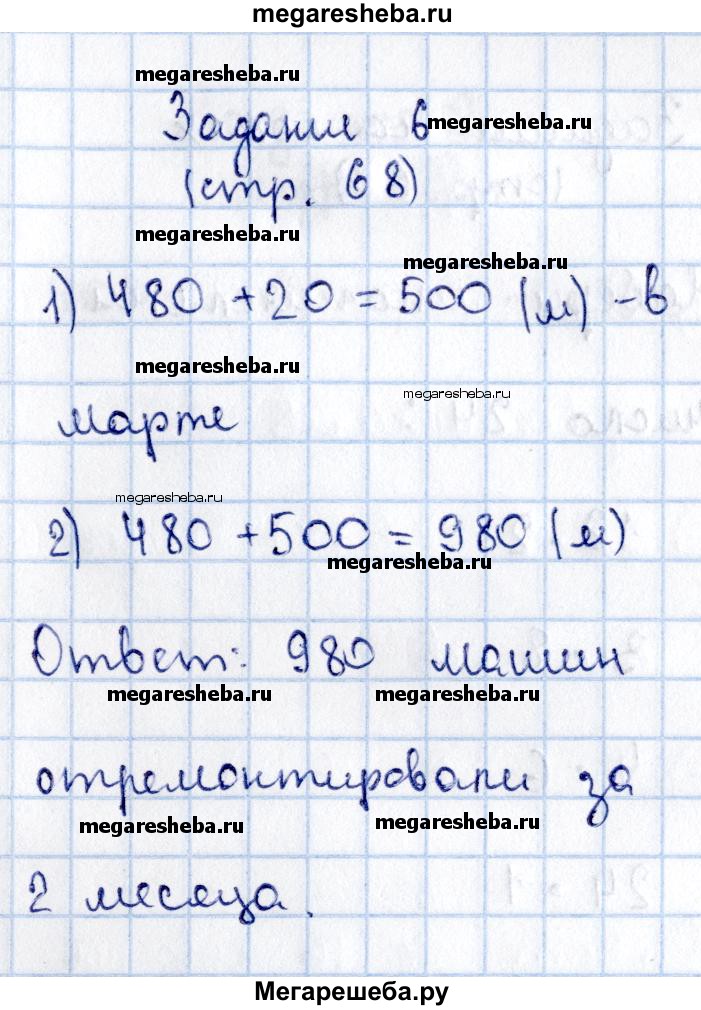 megaresheba.ru
megaresheba.ru
Задание 6
megaresheba.ru
(стр. 68)
megaresheba.ru
megaresheba.ru
1) 480 + 20 = 500 (м) - в
megaresheba.ru
megaresheba.ru
марте
megaresheba.ru
2) 480 + 500 = 980 (м)
megaresheba.ru
Ответ: 980 машин
megaresheba.ru megaresheba.ru
отремонтировали за
megaresheba.ru megaresheba.ru
2 месяца.
Мегарешеба.ру